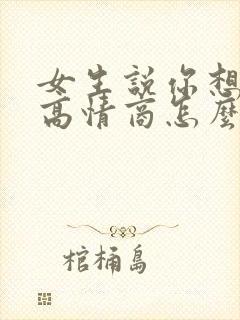 女生說你想
高情商怎麼
棺桶島